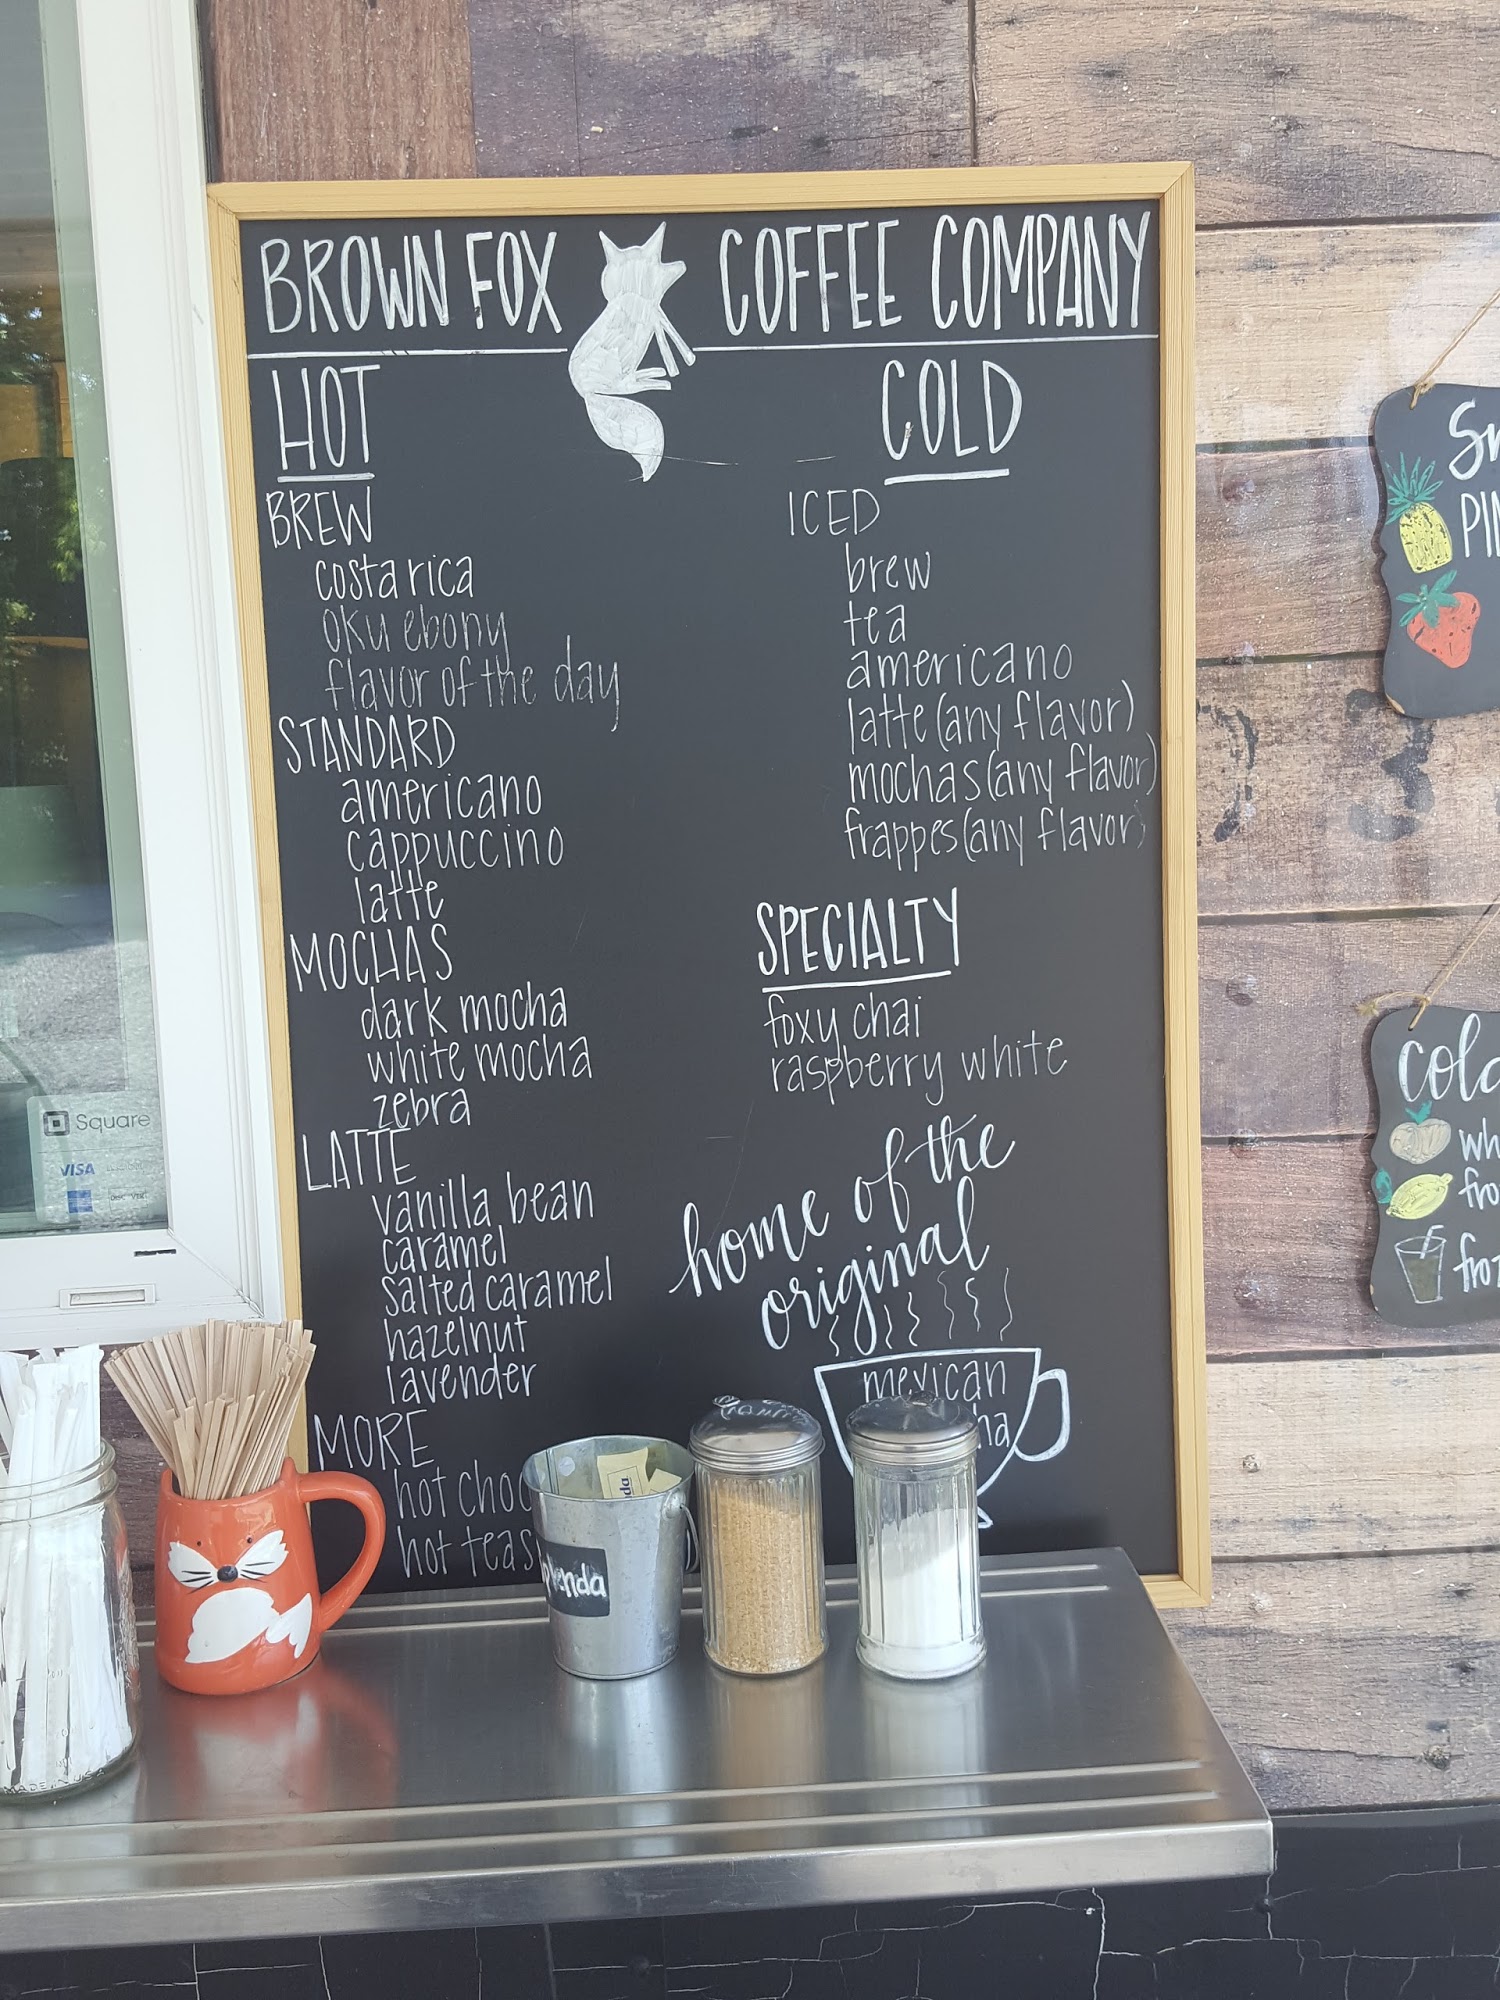 BROWN FOX COFFEE COMPANY
HOT
BREW
costa rica
oku ebony
flavor of the day
STANDARD
americano
cappuccino
latte
MOCHAS
dark mocha
white mocha
zebra
LATTE
vanilla bean
caramel
salted caramel
hazelnut
lavender
MORE
hot choc
hot teas
COLD
ICED
brew
tea
americano
latte (any flavor)
mochas (any flavor)
frappes (any flavor)
SPECIALTY
foxy chai
raspberry white
home of the
original
mexican
ha
Square
VISA
plenda
Sm
PIN
cold
wh
fro
froz
MADE IN USA